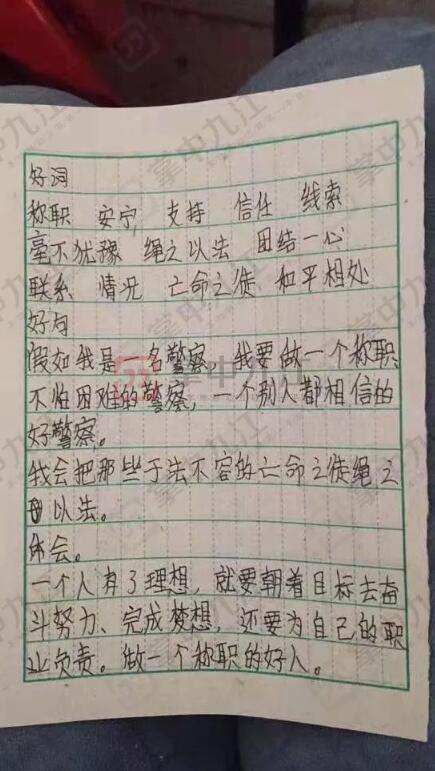 好词
称职 安宁 支持 信任 线索
毫不犹豫 绳之以法 团结一心
联系 情况 亡命之徒 和平相处
好句
假如我是一名警察，我要做一个称职
不怕困难的警察，一个别人都相信的
好警察。
我会把那些于法不容的亡命之徒绳之
以法。
体会。
一个人有了理想，就要朝着目标去奋
斗努力、完成梦想，还要为自己的职
业负责。做一个称职的好人。
掌中九江